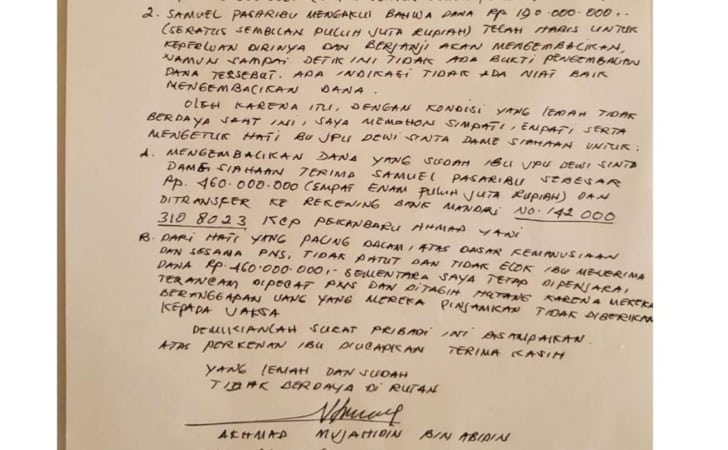 2. SAMUEL PASARIBU MENGAKUI BAHWA DANA Rp 190.000.000,-
(SERATUS SEMBILAN PULUH JUTA RUPIAH) TELAH HABIS UNTUK
KEPERLUAN DIRINYA DAN BERJANJI AKAN MENGEMBALIKAN,
NAMUN SAMPAI DETIK INI TIDAK ADA BUKTI PENGEMBALIAN
DANA TERSEBUT. ADA INDIKASI TIDAK ADA NIAT BAIK
MENGEMBALIKAN DANA.
OLEH KARENA ITU, DENGAN KONDISI YANG LEMAH TIDAK
BERDAYA SAAT INI, SAYA MEMOHON SIMPATI, EMPATI SERTA
MENGETUK HATI BU JPU DEWI SINTA DAME SIAHAAN UNTUK:
A. MENGEMBALIKAN DANA YANG SUDAH IBU JPU DEWI SINTA
DAME SIAHAAN TERIMA SAMUEL PASARIBU SEBESAR
Rp. 460.000.000 (EMPAT ENAM PULUH JUTA RUPIAH) DAN
DITRANSFER KE REKENING BANK MANDIRI NO. 142 000
310 8023 KCP PEKANBARU AHMAD YANI
B. DARI HATI YANG PALING DALAM, ATAS DASAR KEMANUSIAAN
DAN SESAMA PNS, TIDAK PATUT DAN TIDAK ELOK IBU MENERIMA
DANA Rp. 460.000.000,- SEMENTARA SAYA TETAP DIPENJARA,
TERANCAM DIPECAT PNS DAN DITAGIH HUTANG KARENA MEREKA
BERANGGAPAN UANG YANG MEREKA PINJAMKAN TIDAK DIBERIKAN
KEPADA JAKSA
DEMIKIANLAH SURAT PRIBADI INI DISAMPAIKAN.
ATAS PERKENAN IBU DIUCAPKAN TERIMA KASIH
YANG LEMAH DAN SUDAH
TIDAK BERDAYA DI RUTAN
AKHMAD MUJAHIDIN BIN ABIDIN